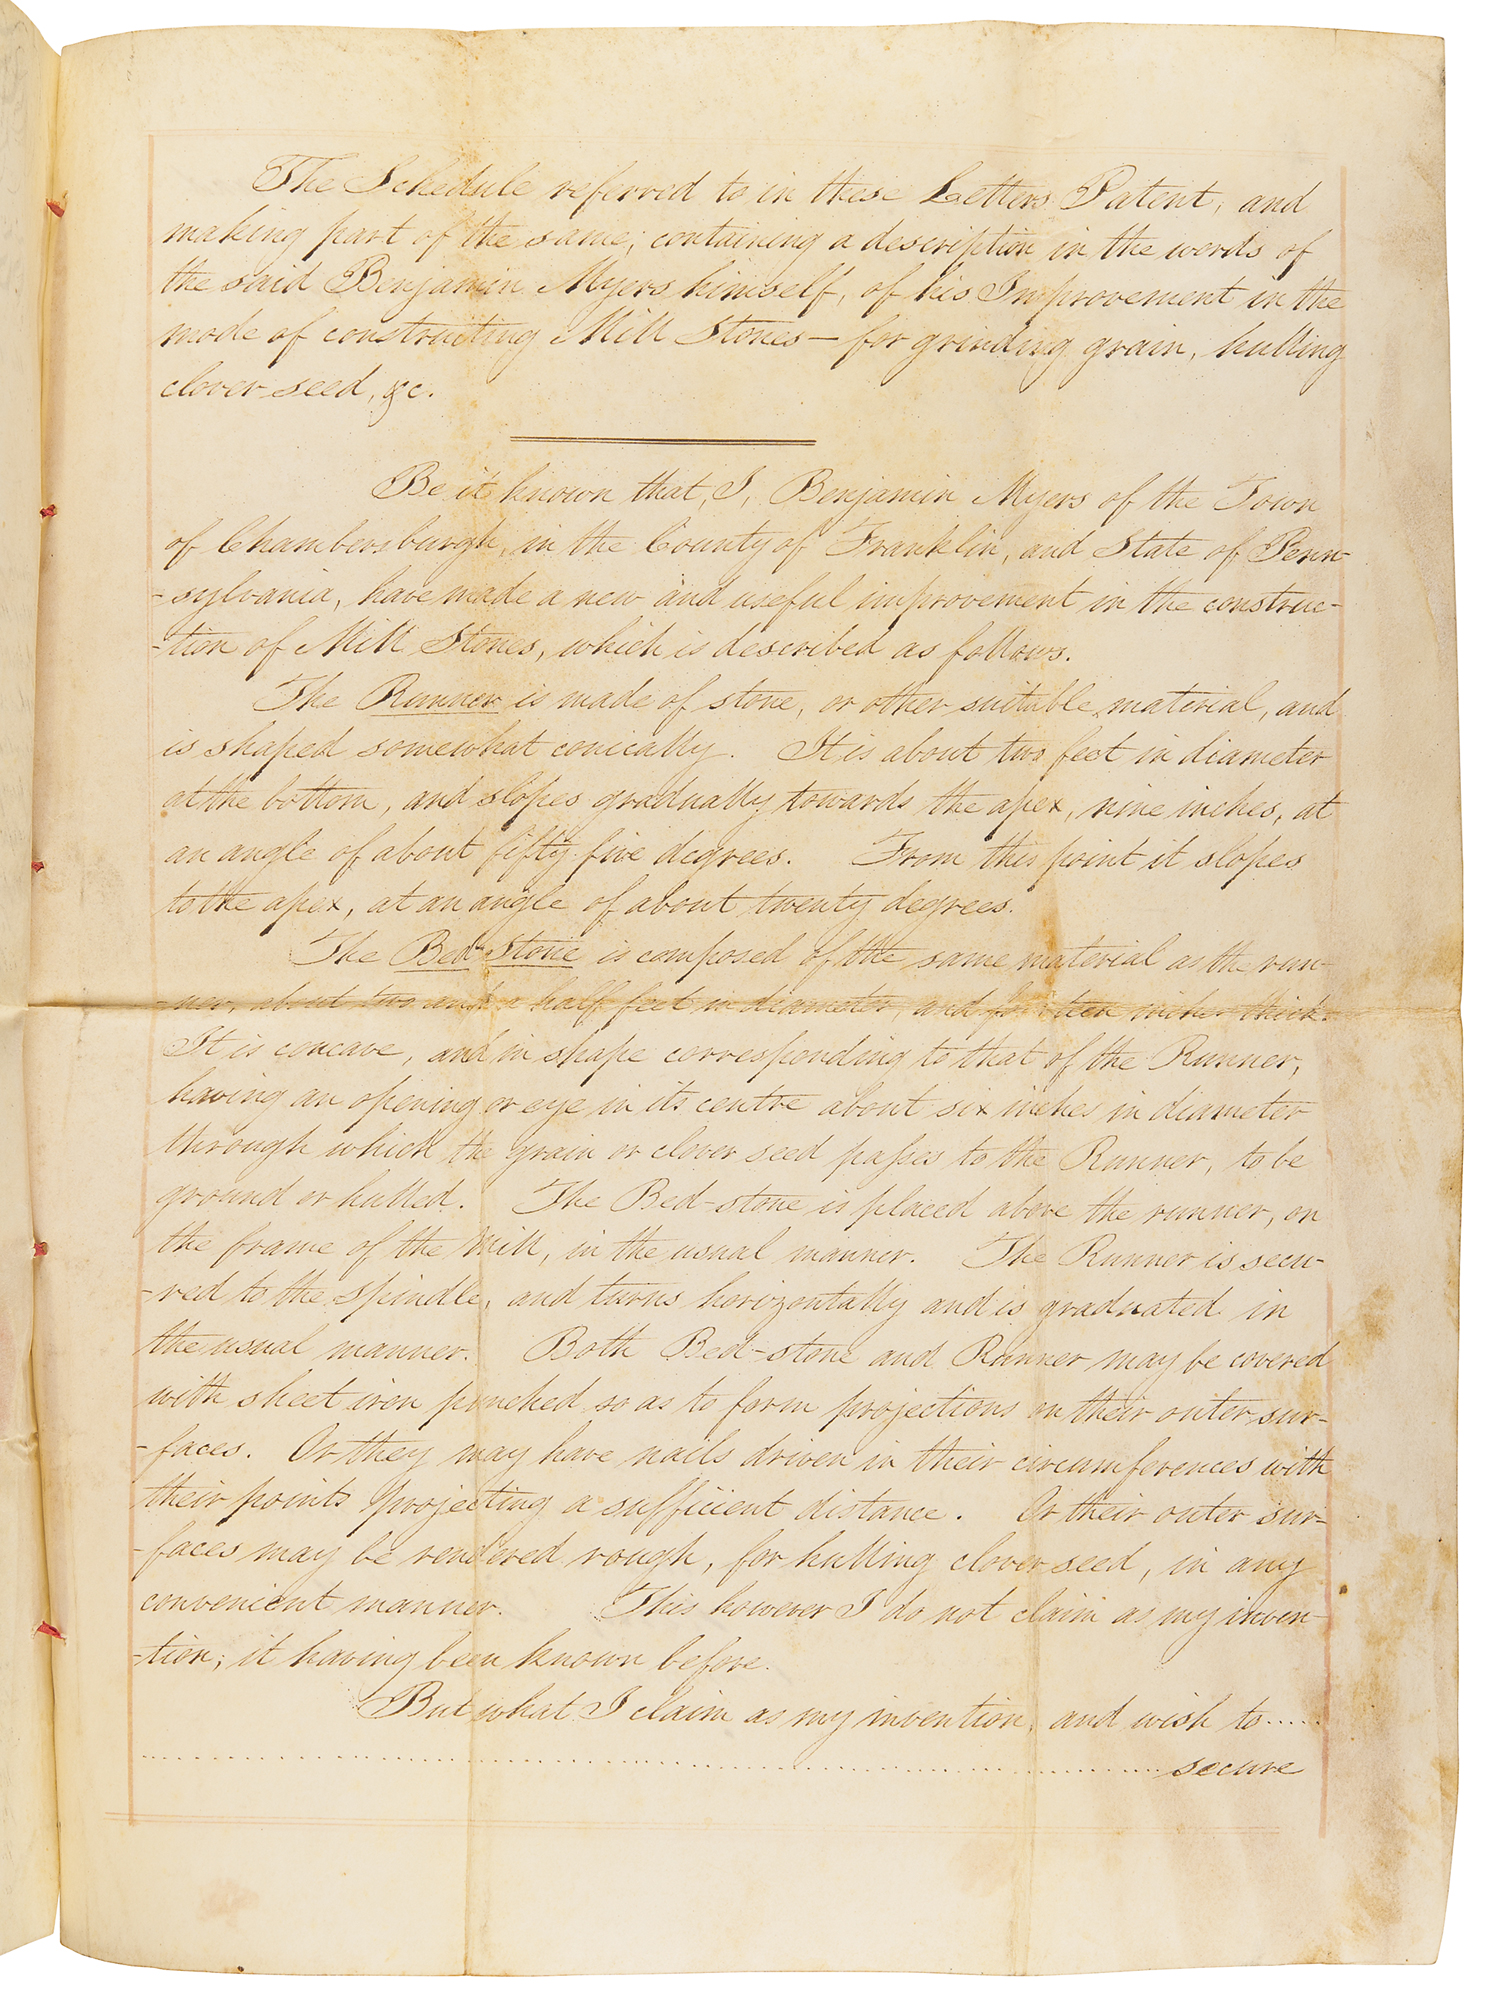 The Schedule referred to in these Letters Patent, and
making part of the same; containing a description in the words of
the said Benjamin Myers himself, of his Improvement in the
mode of constructing Mill Stones — for grinding grain, hulling
clover seed, &c.
Be it known that, I, Benjamin Myers of the Town
of Chambersburgh, in the County of Franklin, and State of Penn-
-sylvania, have made a new and useful improvement in the construc-
-tion of Mill Stones, which is described as follows.
The Runner is made of stone, or other suitable material, and
is shaped somewhat conically. It is about two feet in diameter
at the bottom, and slopes gradually towards the apex, nine inches, at
an angle of about fifty-five degrees. From this point it slopes
to the apex, at an angle of about twenty degrees.
The Bed Stone is composed of the same material as the run-
-ner, about two and a half feet in diameter, and fourteen inches thick.
It is concave, and in shape corresponding to that of the Runner,
having an opening or eye in its centre about six inches in diameter
through which the grain or clover seed passes to the Runner, to be
ground or hulled. The Bed-stone is placed above the runner, on
the frame of the Mill, in the usual manner. The Runner is secu-
-red to the spindle, and turns horizontally and is graduated in
the usual manner. Both Bed-stone and Runner may be covered
with sheet iron punched so as to form projections on their outer sur-
-faces. Or they may have nails driven in their circumferences with
their points projecting a sufficient distance. Or their outer sur-
-faces may be rendered rough, for hulling clover seed, in any
convenient manner. This however I do not claim as my inven-
-tion; it having been known before.
But what I claim as my invention, and wish to......
secure